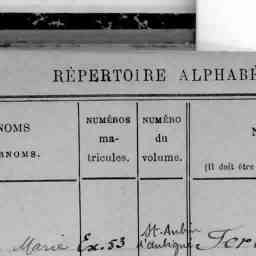 RÉPERTOIRE ALPHABÉ
NOMS
RNOMS.
NUMÉROS
ma-
tricules.
NUMÉRO
du
volume.
N
(Il doit être
Marie Ex. 53 St. Aubin
d'aubigné